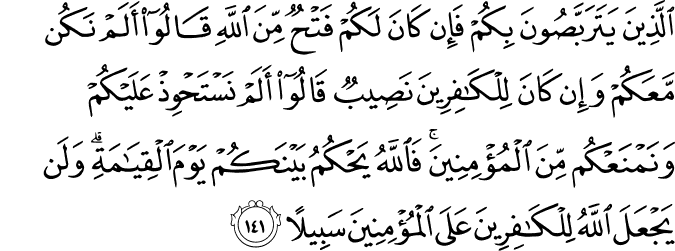 ٱلَّذِينَ يَتَرَبَّصُونَ بِكُمْ فَإِن كَانَ لَكُمْ فَتْحٌ مِّنَ ٱللَّهِ قَالُوٓا۟ أَلَمْ نَكُن
مَّعَكُمْ وَإِن كَانَ لِلْكَٰفِرِينَ نَصِيبٌ قَالُوٓا۟ أَلَمْ نَسْتَحْوِذْ عَلَيْكُمْ
وَنَمْنَعْكُم مِّنَ ٱلْمُؤْمِنِينَ ۚ فَٱللَّهُ يَحْكُمُ بَيْنَكُمْ يَوْمَ ٱلْقِيَٰمَةِ ۗ وَلَن
يَجْعَلَ ٱللَّهُ لِلْكَٰفِرِينَ عَلَى ٱلْمُؤْمِنِينَ سَبِيلًا ١٤١